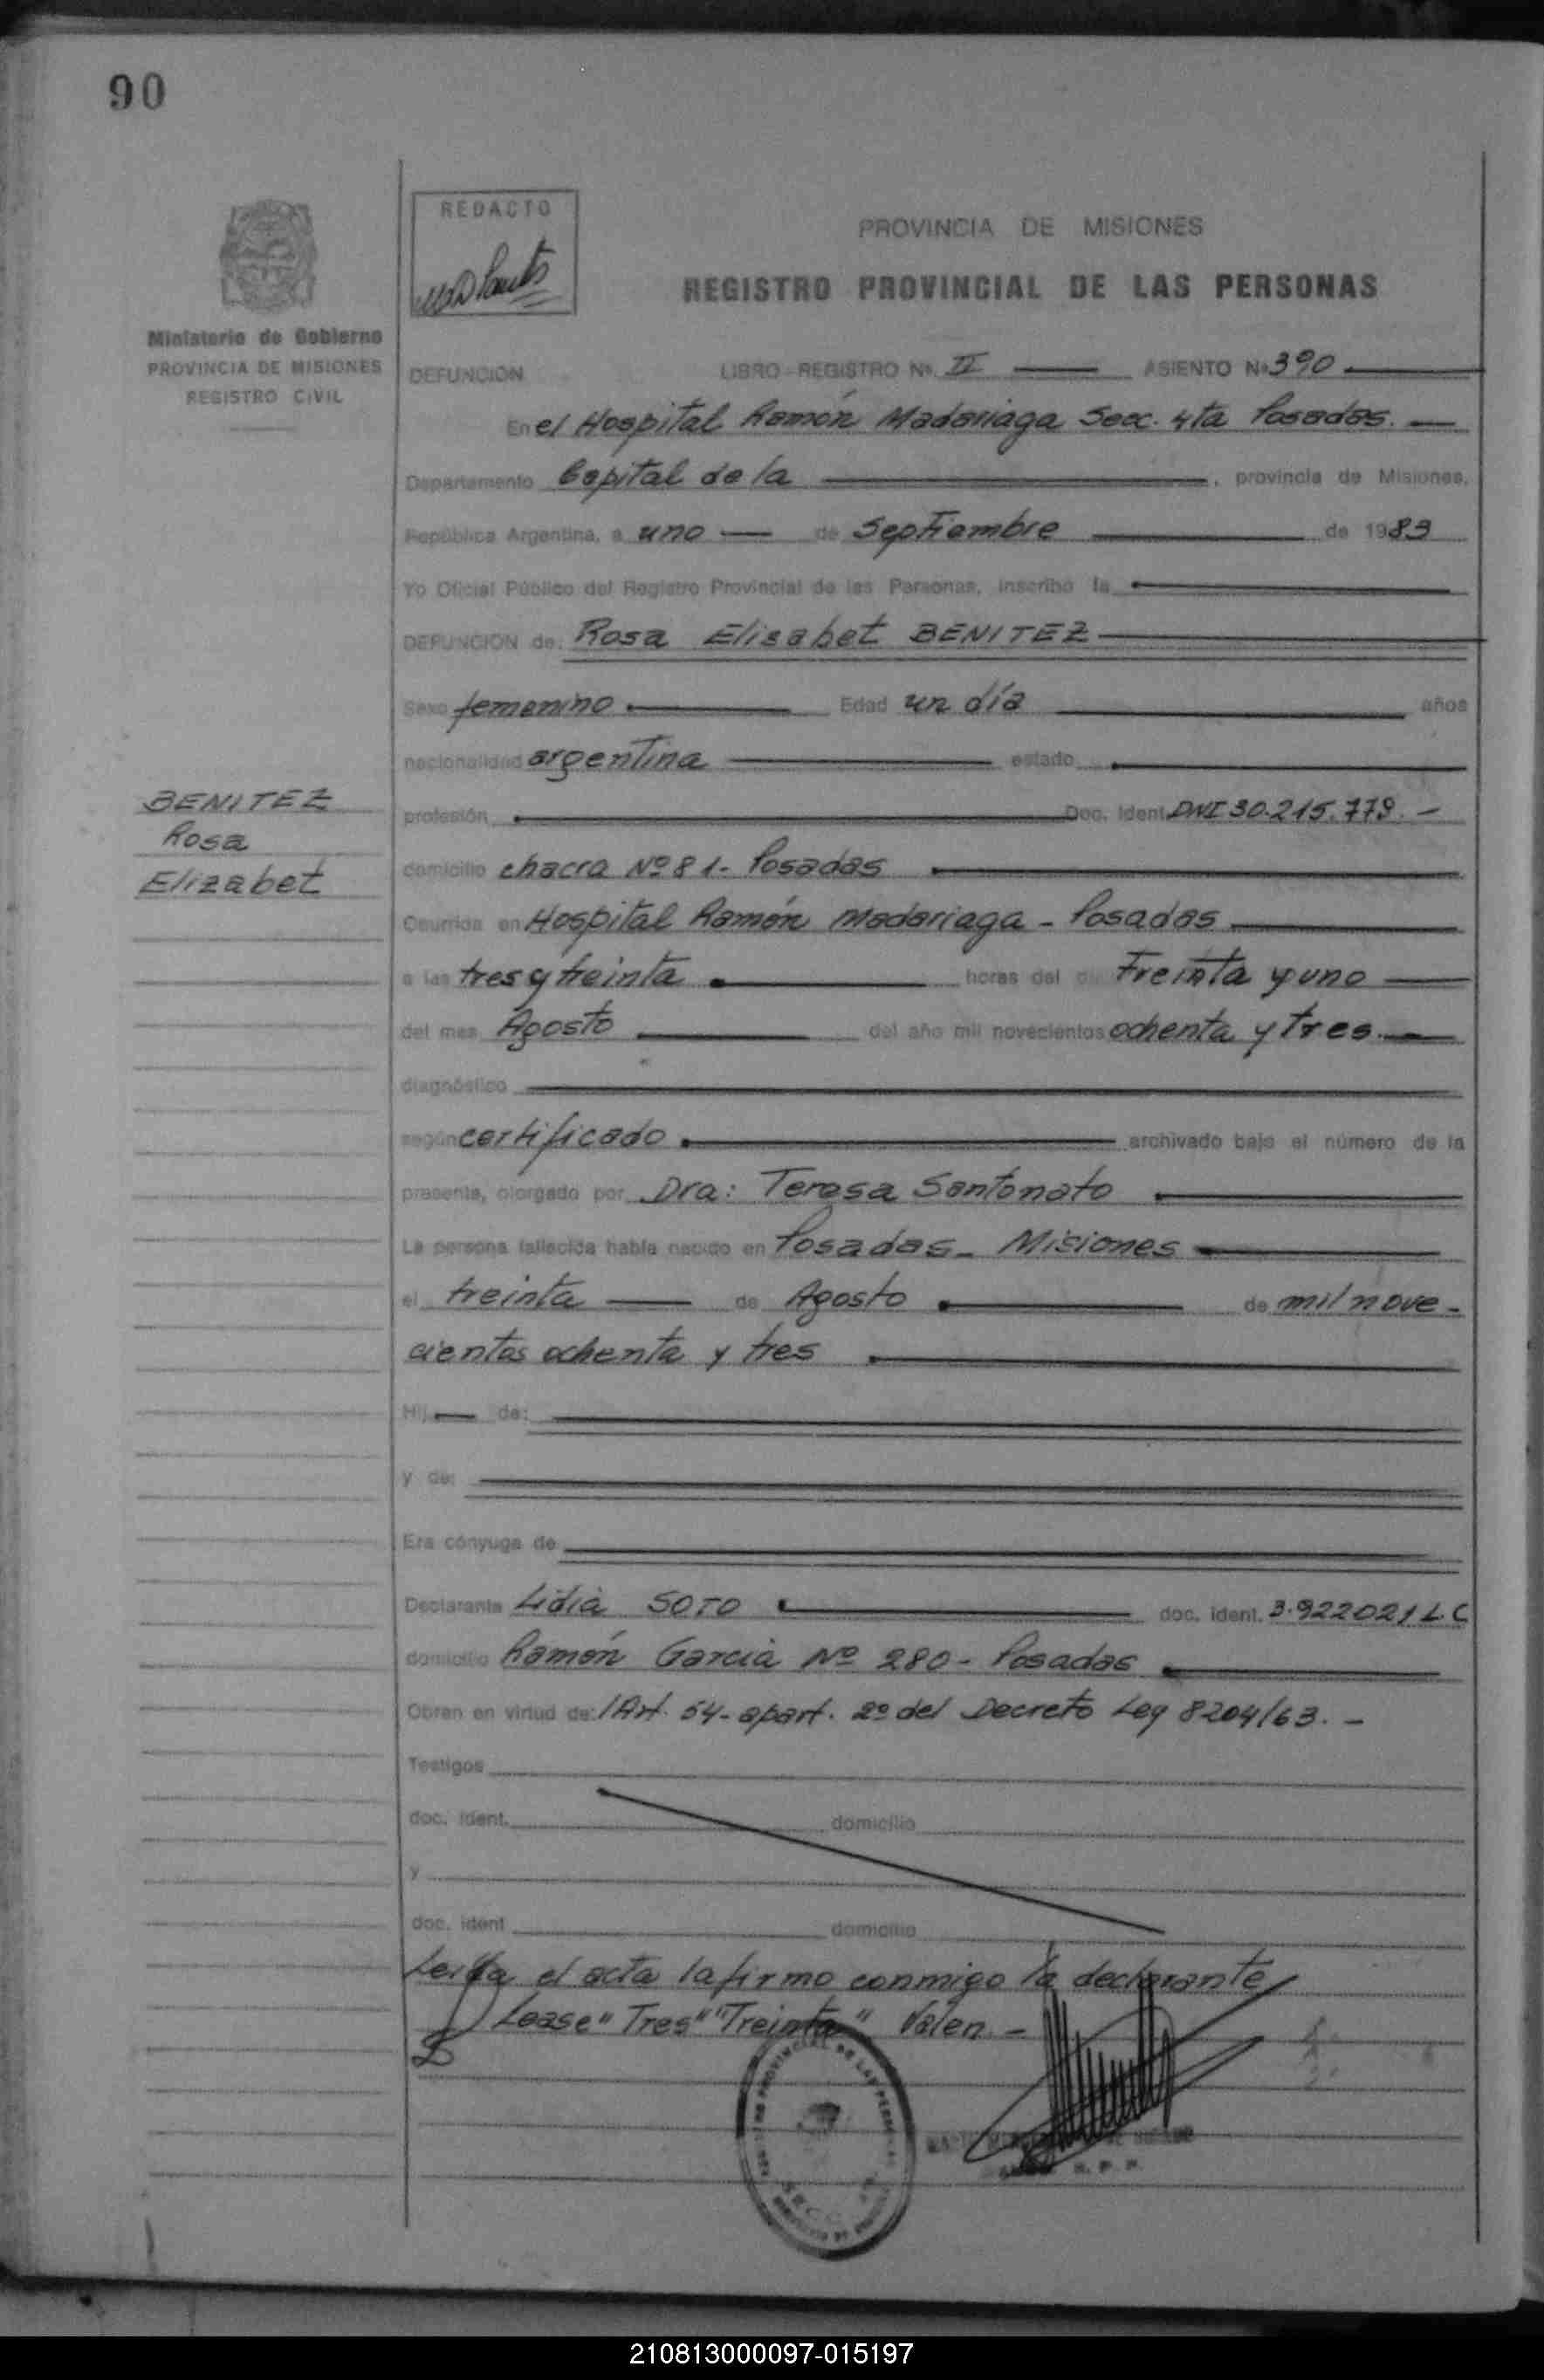 90
REDACTO
Ministerio de Gobierno
PROVINCIA DE MISIONES
REGISTRO CIVIL
PROVINCIA DE MISIONES
REGISTRO PROVINCIAL DE LAS PERSONAS
DEFUNCION LIBRO-REGISTRO Nº. II ASIENTO Nº 390
En el Hospital Ramón Madariaga Secc. 4ta Posadas.
Departamento Capital de la , provincia de Misiones,
República Argentina, a uno de Septiembre de 1983
Yo Oficial Público del Registro Provincial de las Personas, inscribo la
DEFUNCION de: Rosa Elisabet BENITEZ
Sexo femenino Edad un día años
nacionalidad argentina estado
profesión Doc. Ident. DNI 30.215.779.-
domicilio chacra Nº 81- Posadas
Ocurrida en Hospital Ramón Madariaga - Posadas
a las tres y treinta horas del día Treinta y uno
del mes Agosto del año mil novecientos ochenta y tres
diagnóstico
según certificado archivado bajo el número de la
presente, otorgado por Dra: Teresa Santonato
La persona fallecida había nacido en Posadas - Misiones
el treinta de Agosto de mil nove-
cientos ochenta y tres
Hij de:
y de:
Era cónyuge de
Declarante Lidia SOTO doc. ident. 3.922021 L.C
domicilio Ramón Garcia Nº 280- Posadas
Obran en virtud de: /Art. 54- apart. 2º del Decreto Ley 8204/63.-
Testigos
doc. ident. domicilio
y
doc. ident domicilio
Leida el acta la firmo conmigo la declarante
Lease "Tres" "Treinta" Valen -
BENITEZ
Rosa
Elizabet
210813000097-015197